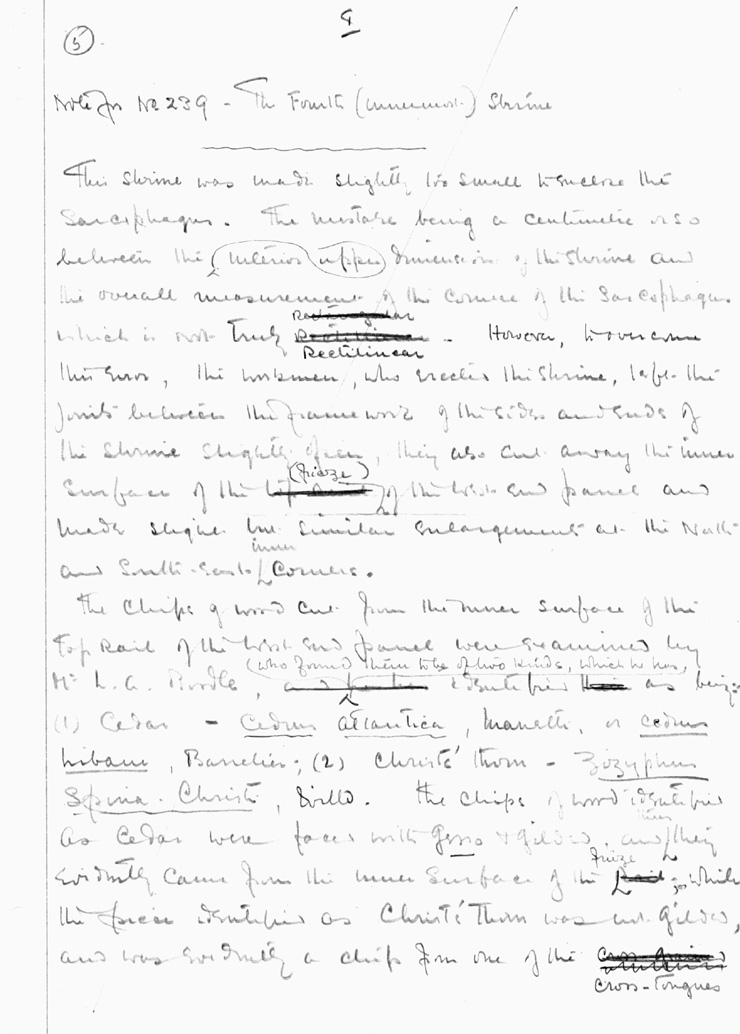 4
5
Note for No. 239 - The Fourth (innermost) Shrine
This shrine was made slightly too small to enclose the
Sarcophagus. The mistake being a centimetre or so
between the (interior upper) dimension of the shrine and
the overall measurement of the cornice of the Sarcophagus
Rectangular
which is not truly Rectilinear. However, to overcome
Rectilinear
this error, the workmen, who erected the shrine, left the
joints between the framework of the sides and ends of
the shrine slightly open, they also cut away the inner
(frieze)
surface of the of the West end panel and
made slight but similar enlargements at the North-
inner
and South-East corners.
The chips of wood cut from the inner surface of the
top rail of the West end panel were examined by
(who found them to be of two kinds, which he has,
Mr L. A. Boodle, identified as being:
(1) Cedar - Cedrus atlantica, Manetti, or Cedrus
Libani, Barrelier; (2) Christs' thorn - Zozyphus
Spina-Christi, Willd. The chips of wood identified
then
as Cedar were faced with Gesso & gilded, and they
frieze
evidently came from the inner surface of the Rail; while
the piece identified as Christs' Thorn was not gilded,
and was evidently a chip from one of the
cross-tongues